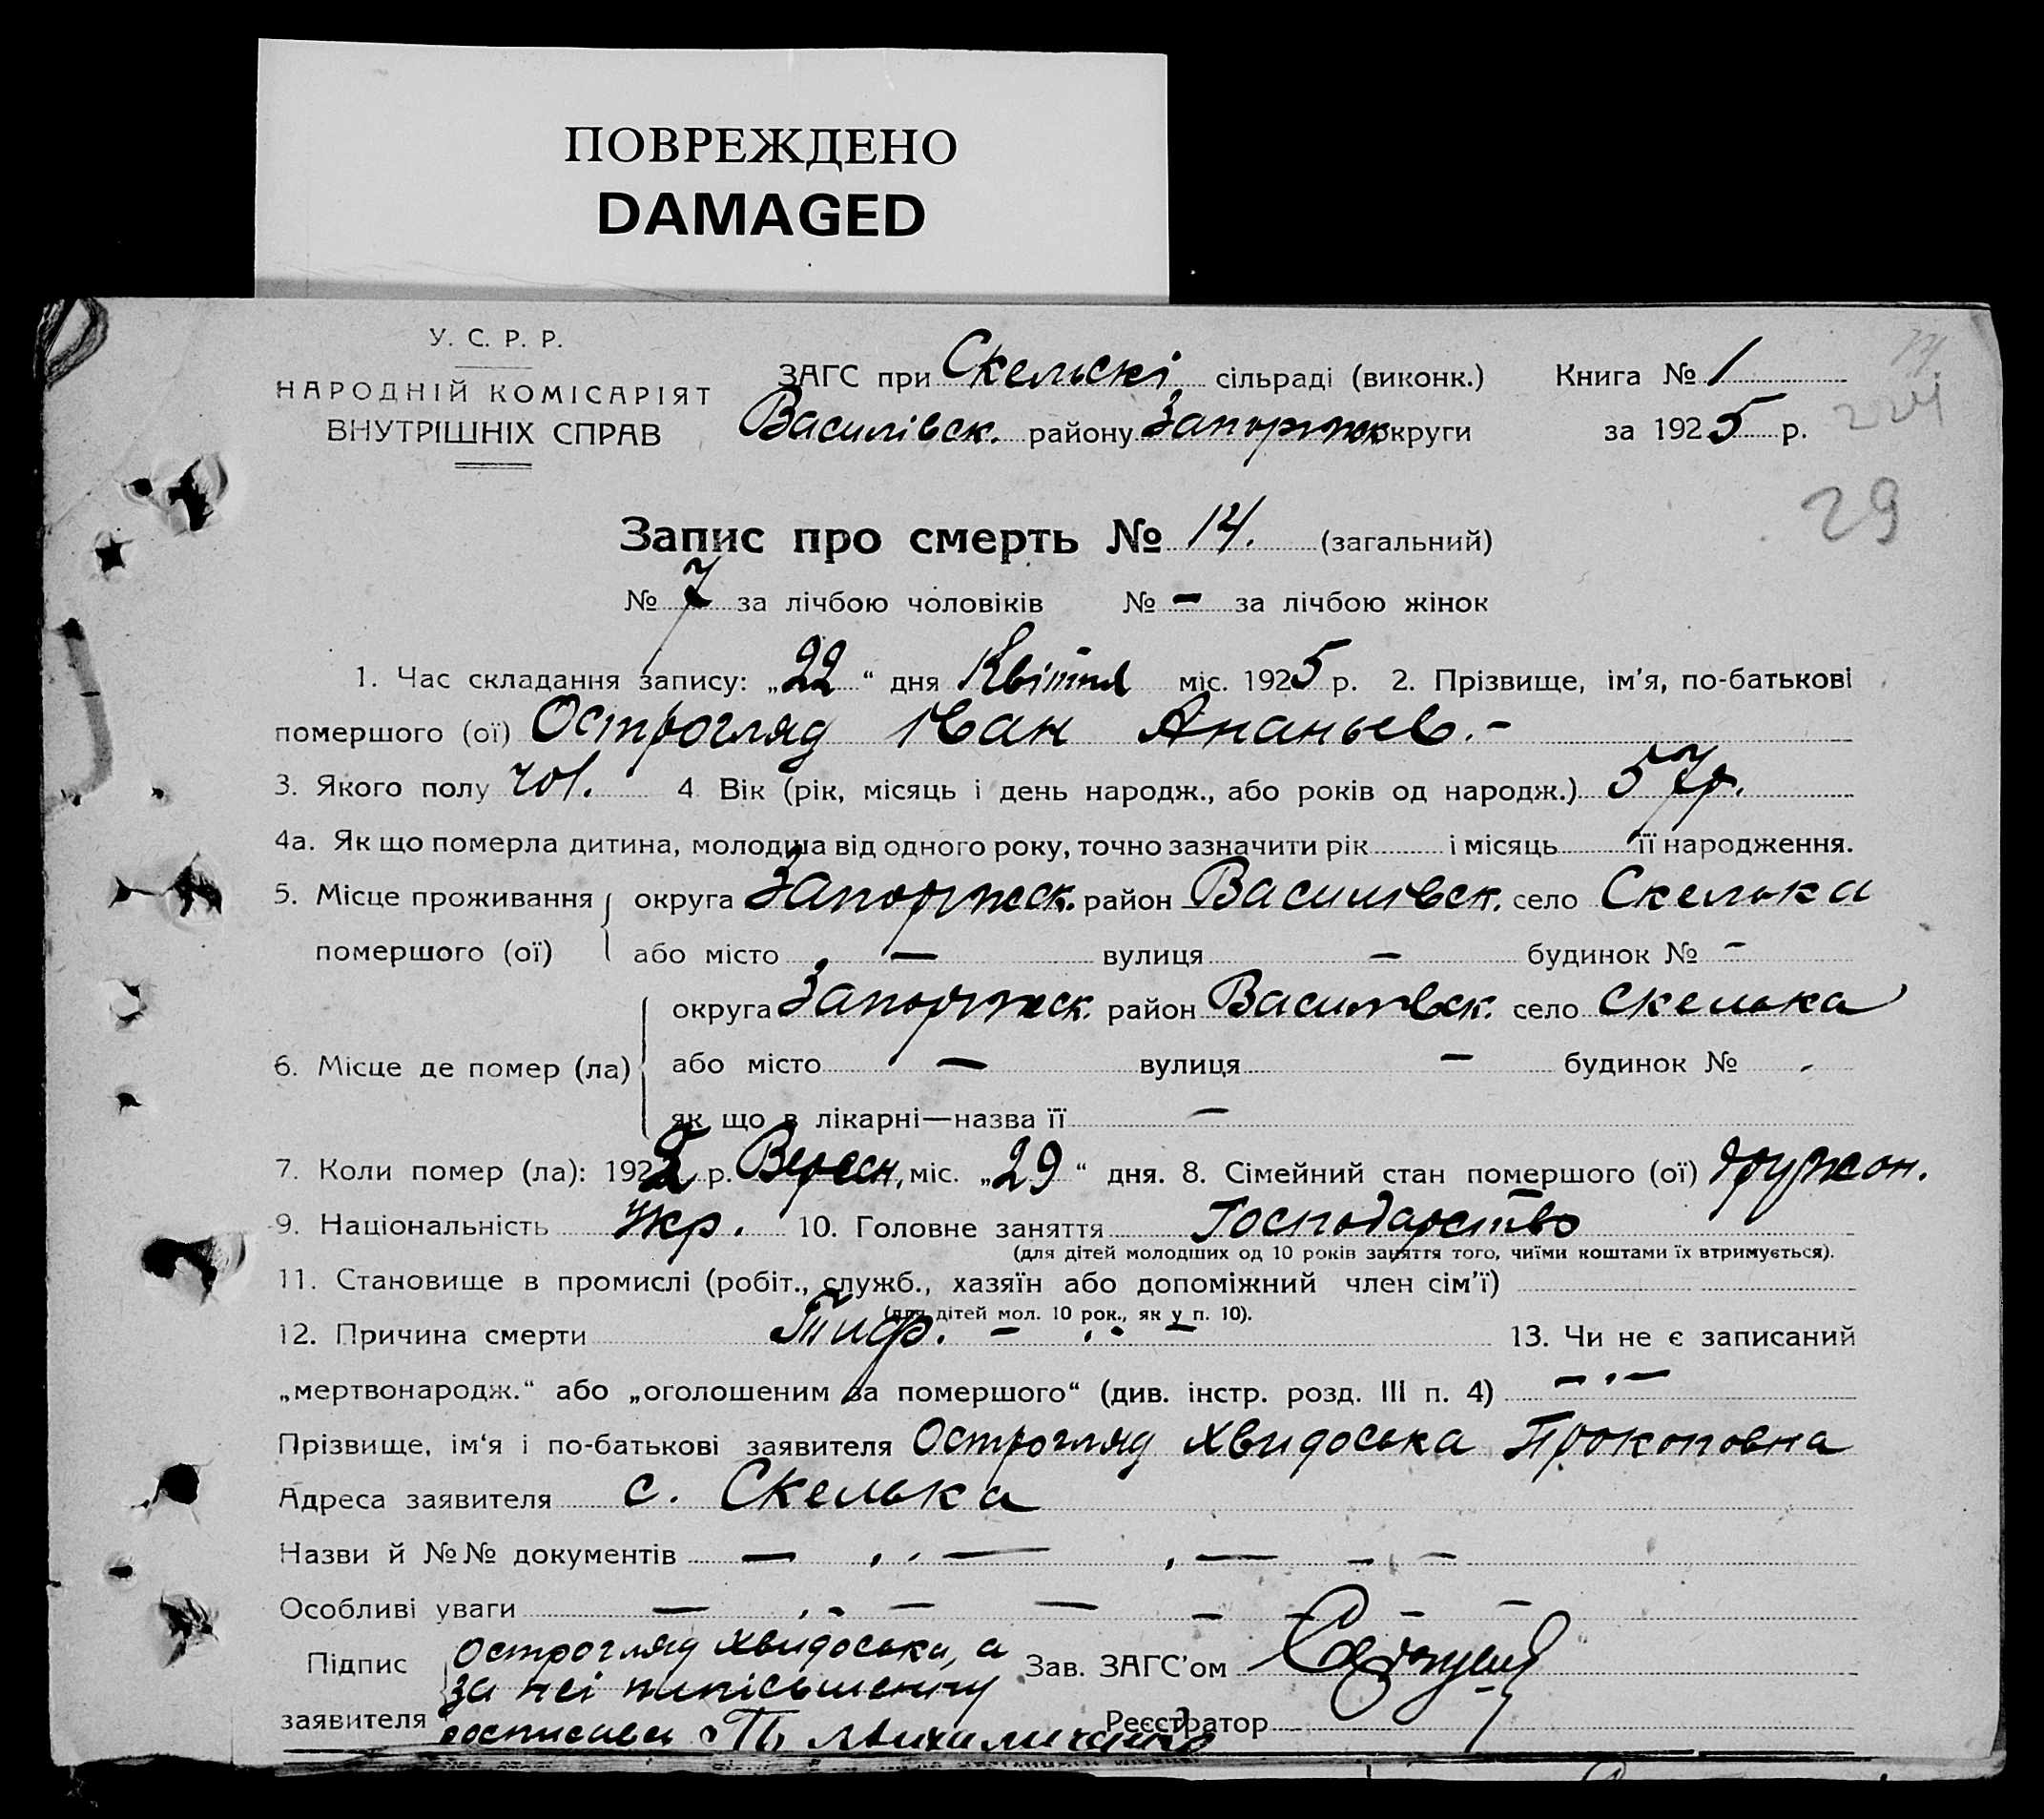 ПОВРЕЖДЕНО
DAMAGED
У. С. Р. Р.
НАРОДНІЙ КОМІСАРІЯТ
ВНУТРІШНІХ СПРАВ
ЗАГС при Скельскі сільраді (виконк.) Книга № 1
Василівск. району Запоріжск округи за 1925 р.
224
29
Запис про смерть № 14. (загальний)
№ 7 за лічбою чоловіків № — за лічбою жінок
1. Час складання запису: „22“ дня Квітня міс. 1925 р. 2. Прізвище, ім'я, по-батькові
помершого (ої) Острогляд Иван Ананьев. -
3. Якого полу чол. 4 Вік (рік, місяць і день народж., або років од народж.) 57 р.
4а. Як що померла дитина, молодша від одного року, точно зазначити рік і місяць її народження.
5. Місце проживання округа Запоріжск. район Василівск. село Скелька
помершого (ої) або місто — вулиця — будинок № -
округа Запоріжск. район Василівск. село Скелька
6. Місце де помер (ла) або місто — вулиця — будинок № -
як що в лікарні—назва її —
7. Коли помер (ла): 1922 р. Вересн. міс. „29“ дня. 8. Сімейний стан помершого (ої) дружон.
9. Національність Укр. 10. Головне заняття Господарство
(для дітей молодших од 10 років заняття того, чиїми коштами їх втримується).
11. Становище в промислі (робіт., служб., хазяїн або допоміжний член сім'ї)
(для дітей мол. 10 рок., як у п. 10).
12. Причина смерти Тиф. — — 13. Чи не є записаний
„мертвонародж.“ або „оголошеним за помершого“ (див. інстр. розд. III п. 4) — —
Прізвище, ім'я і по-батькові заявителя Острогляд Хвидоська Проконовна
Адреса заявителя с. Скелька
Назви й №№ документів — — — — —
Особливі уваги — — — — — — — —
Підпис Острогляд Хвидоська, а Зав. ЗАГС'ом
за неі нипісьменну
заявителя росписався Реєстратор